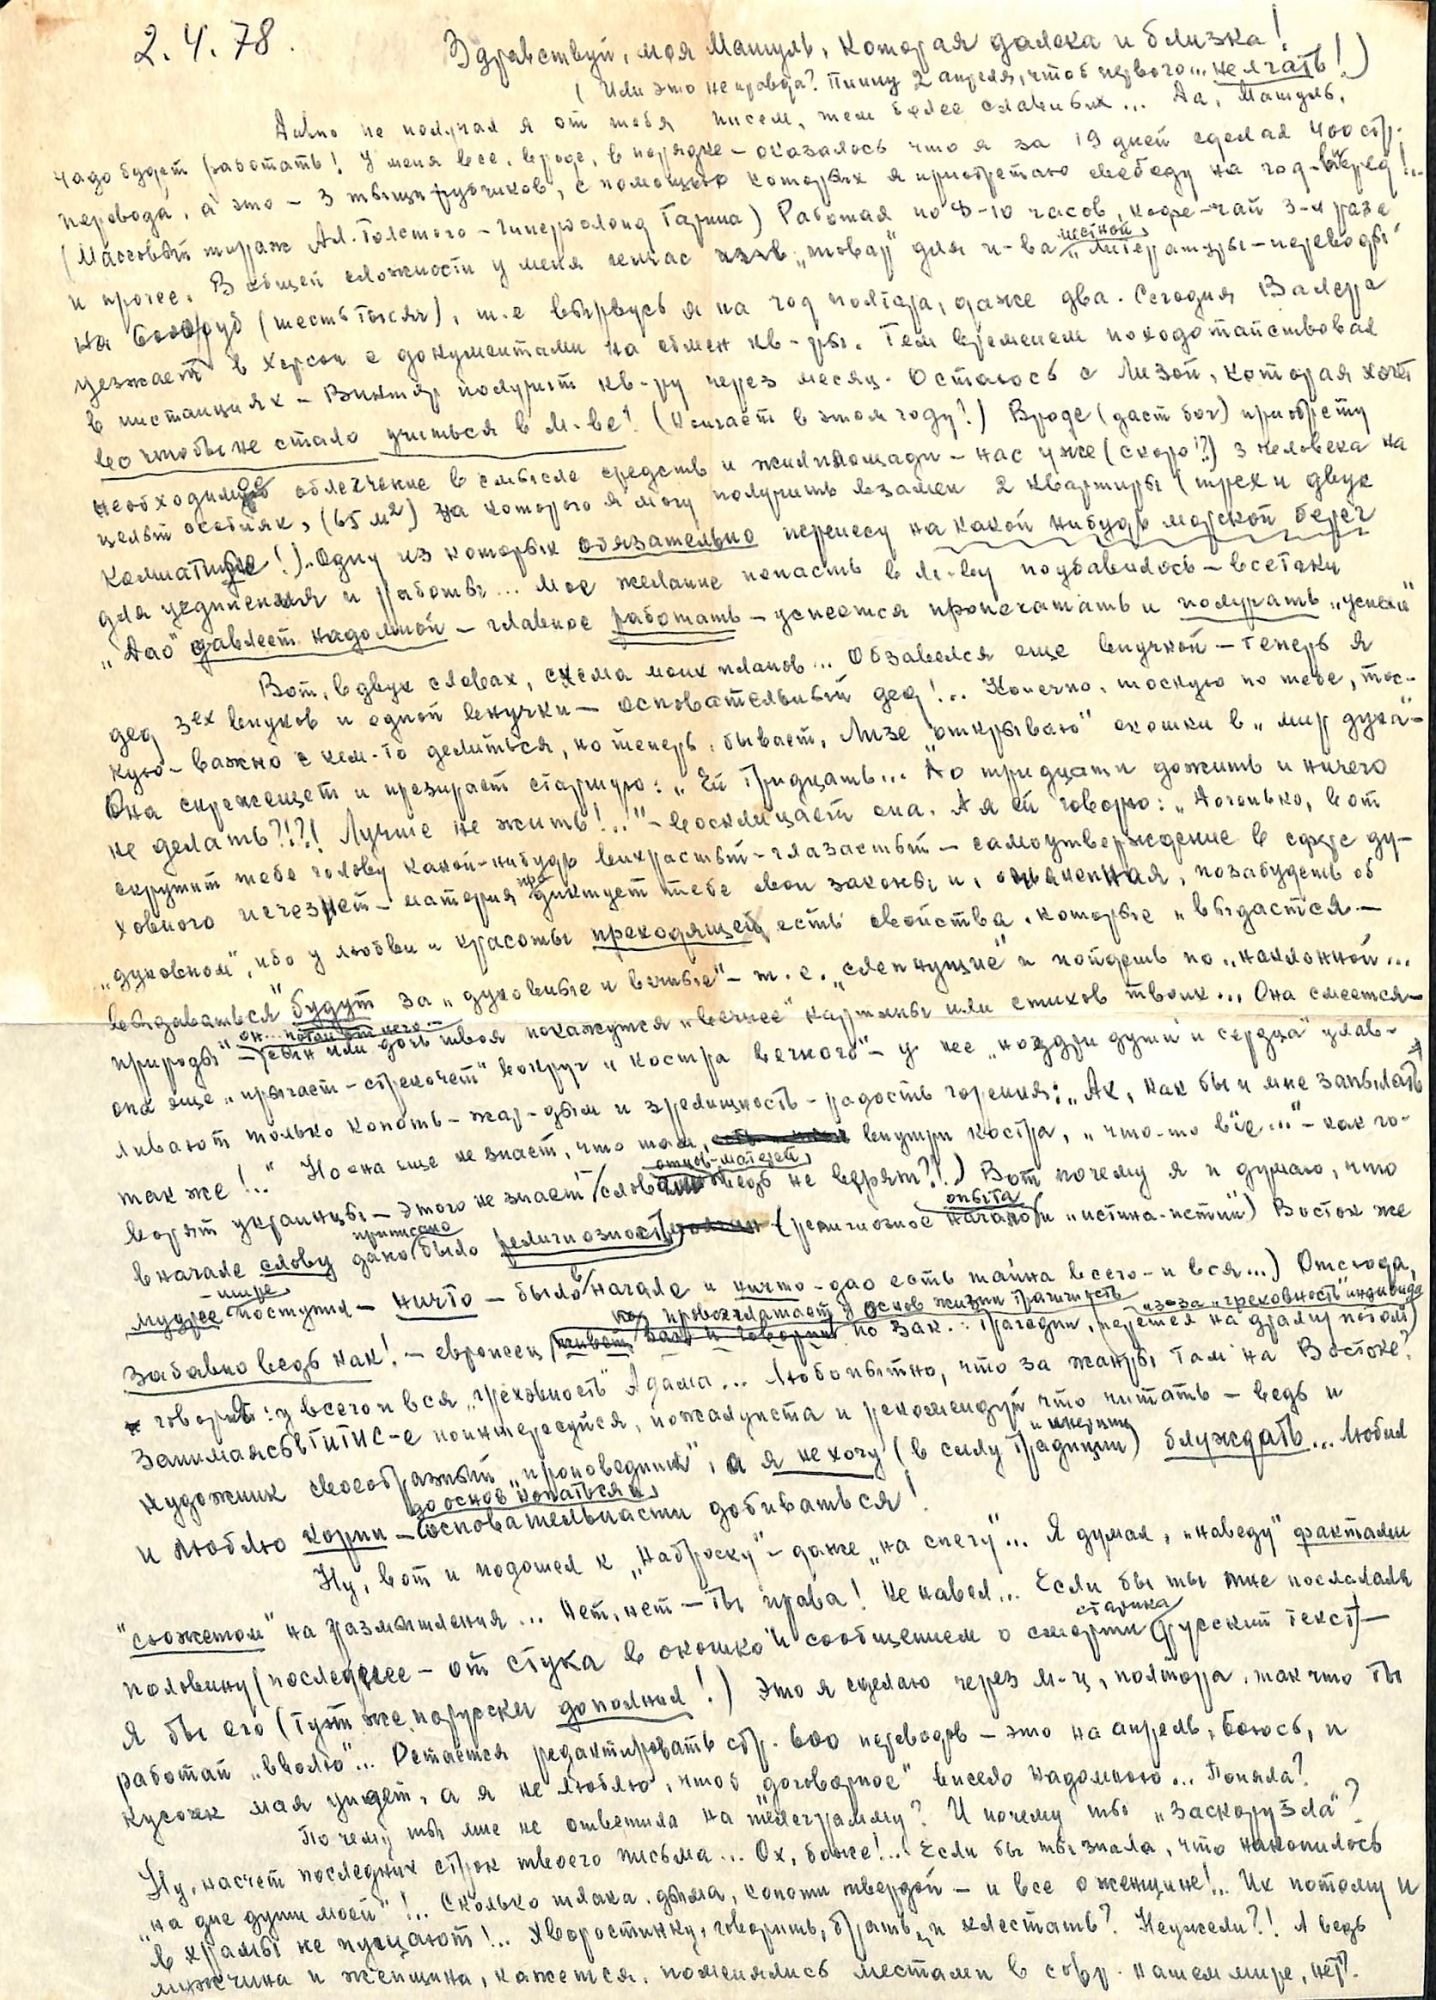 2.4.78.
Здравствуй, моя Машуль, которая далека и близка!
(Или это неправда? Пишу 2 апреля, чтоб первого... не лгать!)
Давно не получал я от тебя писем, тем более славных... Да, Машуль,
надо будет работать! У меня все, вроде, в порядке – оказалось что я за 19 дней сделал 400 стр.
перевода, а это – 3 тыщи рубчиков, с помощью которых я приобретаю свободу на год-вперед!..
(Массовый тираж Ал. Толстого – Гиперболоид Гарина) Работая по 8-10 часов, кофе-чай 3-4 раза
и прочее. В общей сложности у меня сейчас "товар" для и-ва местной "литературы – переводы"
на 6000 руб (шесть тысяч), т.е вырвусь я на год полтора, даже два. Сегодня Валера
уезжает в Херсон с документами на обмен кв-ры. Тем временем походотайствовал
в инстанциях – Виктор получит кв-ру через месяц. Остаюсь с Лизой, которая хочет
во чтобы не стало учиться в М-ве! (Кончает в этом году!) Вроде (даст бог) приобрету
необходимое облегчение в смысле средств и жилплощади – нас уже (скоро!?) 3 человека на
целый особняк, (65 м2) за которого я могу получить взамен 2 квартиры (трех и двух
комнатные!). Одну из которых обязательно перенесу на какой нибудь морской берег
для уединения и работы... Мое желание попасть в М-ву поубавилось – всетаки
"Дао" давлеет надомной – главное работать – успеется пропечатать и получать "успехи"
Вот, в двух словах, схема моих планов... Обзавелся еще внучкой – теперь я
дед 3ех внуков и одной внучки – основательный дед!... Конечно, тоскую по тебе, тос-
кую – важно с кем-то делиться, но теперь, бывает, Лизе "открываю" окошки в "мир духа" –
Она скрежещет и презирает старшую: "Ей тридцать... До тридцати дожить и ничего
не делать?!?! Лучше не жить!..!" – восклицает она. А я ей говорю: "Доченько, вот
скружит тебе голову какой-нибудь вихрастый-глазастый – самоутверждение в сфере ду-
ховного исчезнет – материя продиктует тебе свои законы и, позабудешь об
"духовном", ибо у любви и красоты преходящей есть свойства, которые "выдастся –
выдаваться" будут за "духовные и вечные" – т.е. "слепнущие" и пойдешь по "наклонной...
природы" – он... потом от него... – сын или дочь твоя покажутся "вечнее" картины или стихов твоих... Она смеется –
она еще "прыгает-стрекочет" вокруг "костра вечного" – у нее "ноздри души и сердца" улав-
ливают только копоть – жар-дым и зрелищность – радость горения: "Ах, как бы и мне запылать
так же!.." Но она еще не знает, что там, внутри костра, "что-то віе..." – как го-
ворят украинцы – этого не знает (словам отцов-матерей ведь не верят?!) Вот почему я и думаю, что
вначале слову дано приписано было религиозность (религиозное начало опыта и "истина-истин") Восток же
мудрее – шире поступил – ничто – было в начале и ничто – дао есть тайна всего – и вся...) Отсюда,
Забавно ведь как! – европеец провозглашает у основ жизни трагичность по зак.: трагедии, перешел на драму потом) из-за "греховность" индивида
говорить: у всего и вся "греховность" Адама... Любопытно, что за жанры там на Востоке?
Занимаясь в ГИТИС-е поинтересуйся, пожалуйста и рекомендуй что читать – ведь и
художник своеобразный "проповедник", а я не хочу (в силу традиции и инерции) блуждать... Любил
и люблю корни – до основ "копаться" и основательности добиваться!
Ну, вот и подошел к "Наброску" – даже "на снегу"... Я думал, "наведу" фактами
"сюжетом" на размышления... Нет, нет – ты права! Не навел... Если бы ты мне послала
половину (последнее – от стука в окошко и сообщением о смерти старика (русский текст) –
Я бы его (тут же порусски дополнил!) Это я сделаю через м-ц, полтора, так что ты
работай "вволю"... Остается редактировать стр. 600 переводов – это на апрель, боюсь, и
кусочек мая уйдет, а я не люблю, чтоб "договорное" висело надомною... Поняла?
Почему ты мне не ответила на телеграмму? И почему ты "заскорузла"?
Ну, насчет последних строк твоего письма... Ох, боже!... Если бы ты знала, что накопилось
"на дне души моей"!.. Сколько шлака, дыма, копоти твердой – и все о женщине!.. Их потому и
в храмы не пущают!... Хворостинку, говорить, брать, и хлестать? Неужели?! А ведь
мужчина и женщина, кажется, поменялись местами в совр. нашем мире, нет?.